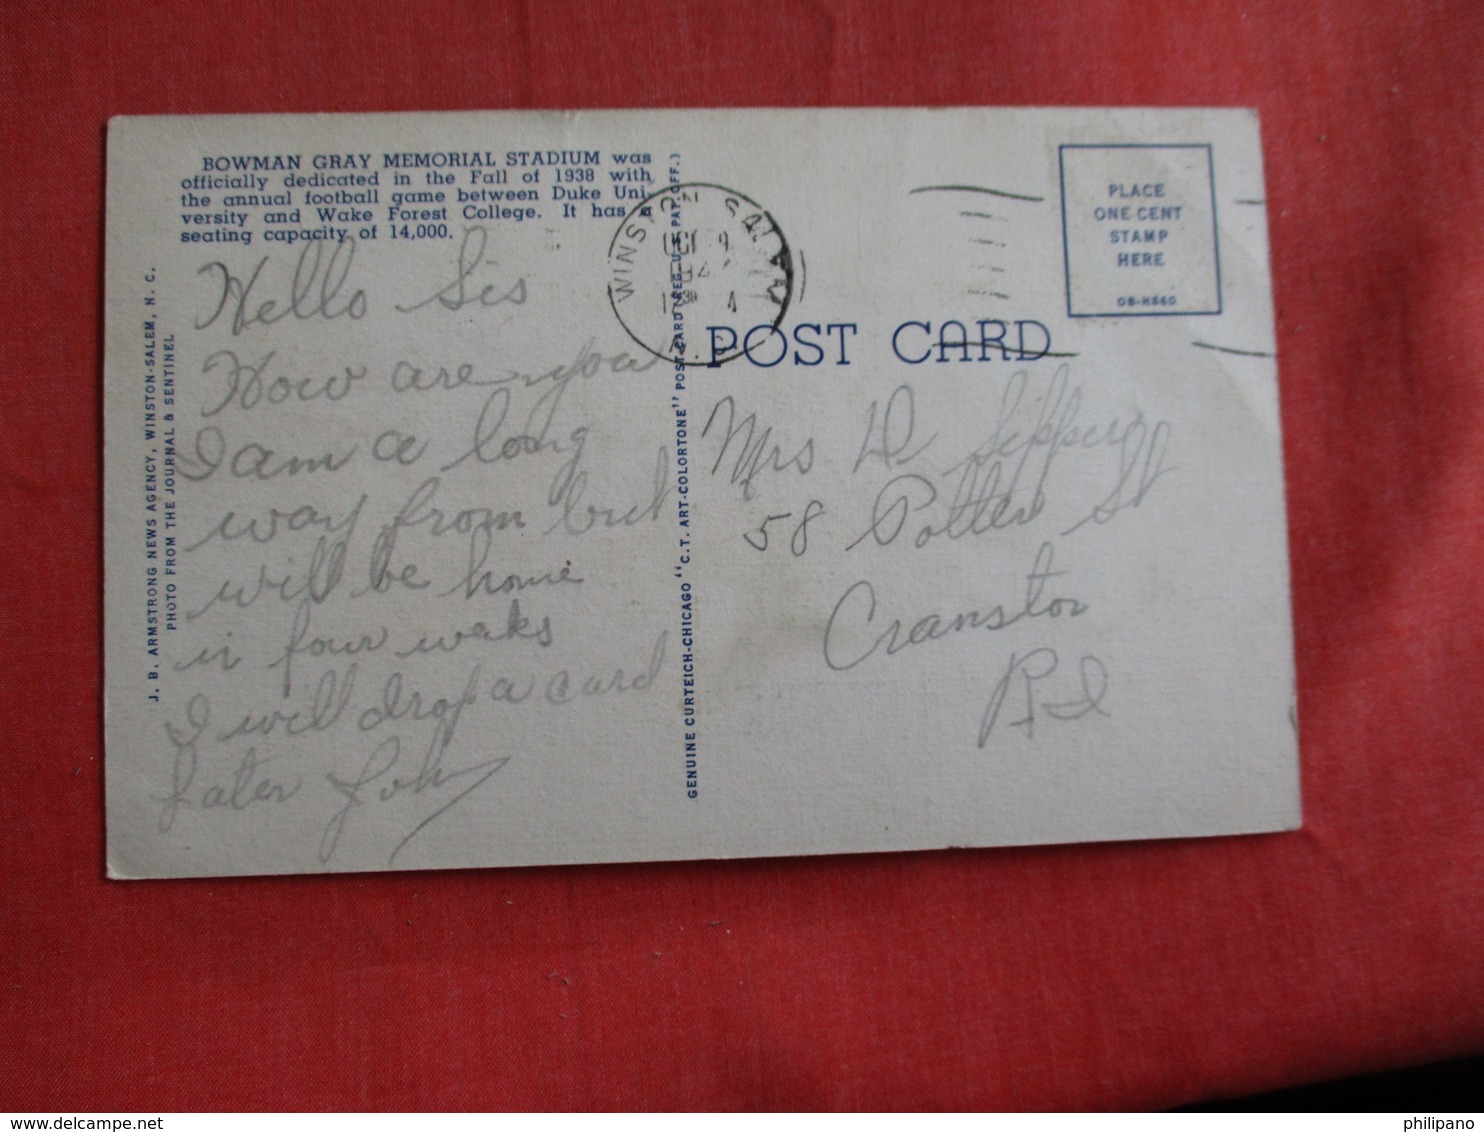 BOWMAN GRAY MEMORIAL STADIUM was
officially dedicated in the Fall of 1938 with
the annual football game between Duke Uni-
versity and Wake Forest College. It has a
seating capacity of 14,000.
Hello Sis
How are you
I am a long
way from but
will be home
in four weaks
I will drop a card
Later John
J. B. ARMSTRONG NEWS AGENCY, WINSTON-SALEM, N. C.
PHOTO FROM THE JOURNAL & SENTINEL
GENUINE CURTEICH-CHICAGO "C.T. ART-COLORTONE" POST CARD (REG. U.S. PAT. OFF.)
OCT 9
POST CARD
PLACE
ONE CENT
STAMP
HERE
OB-H860
Mrs D
58 Potter St
Cranston
R I
philipano